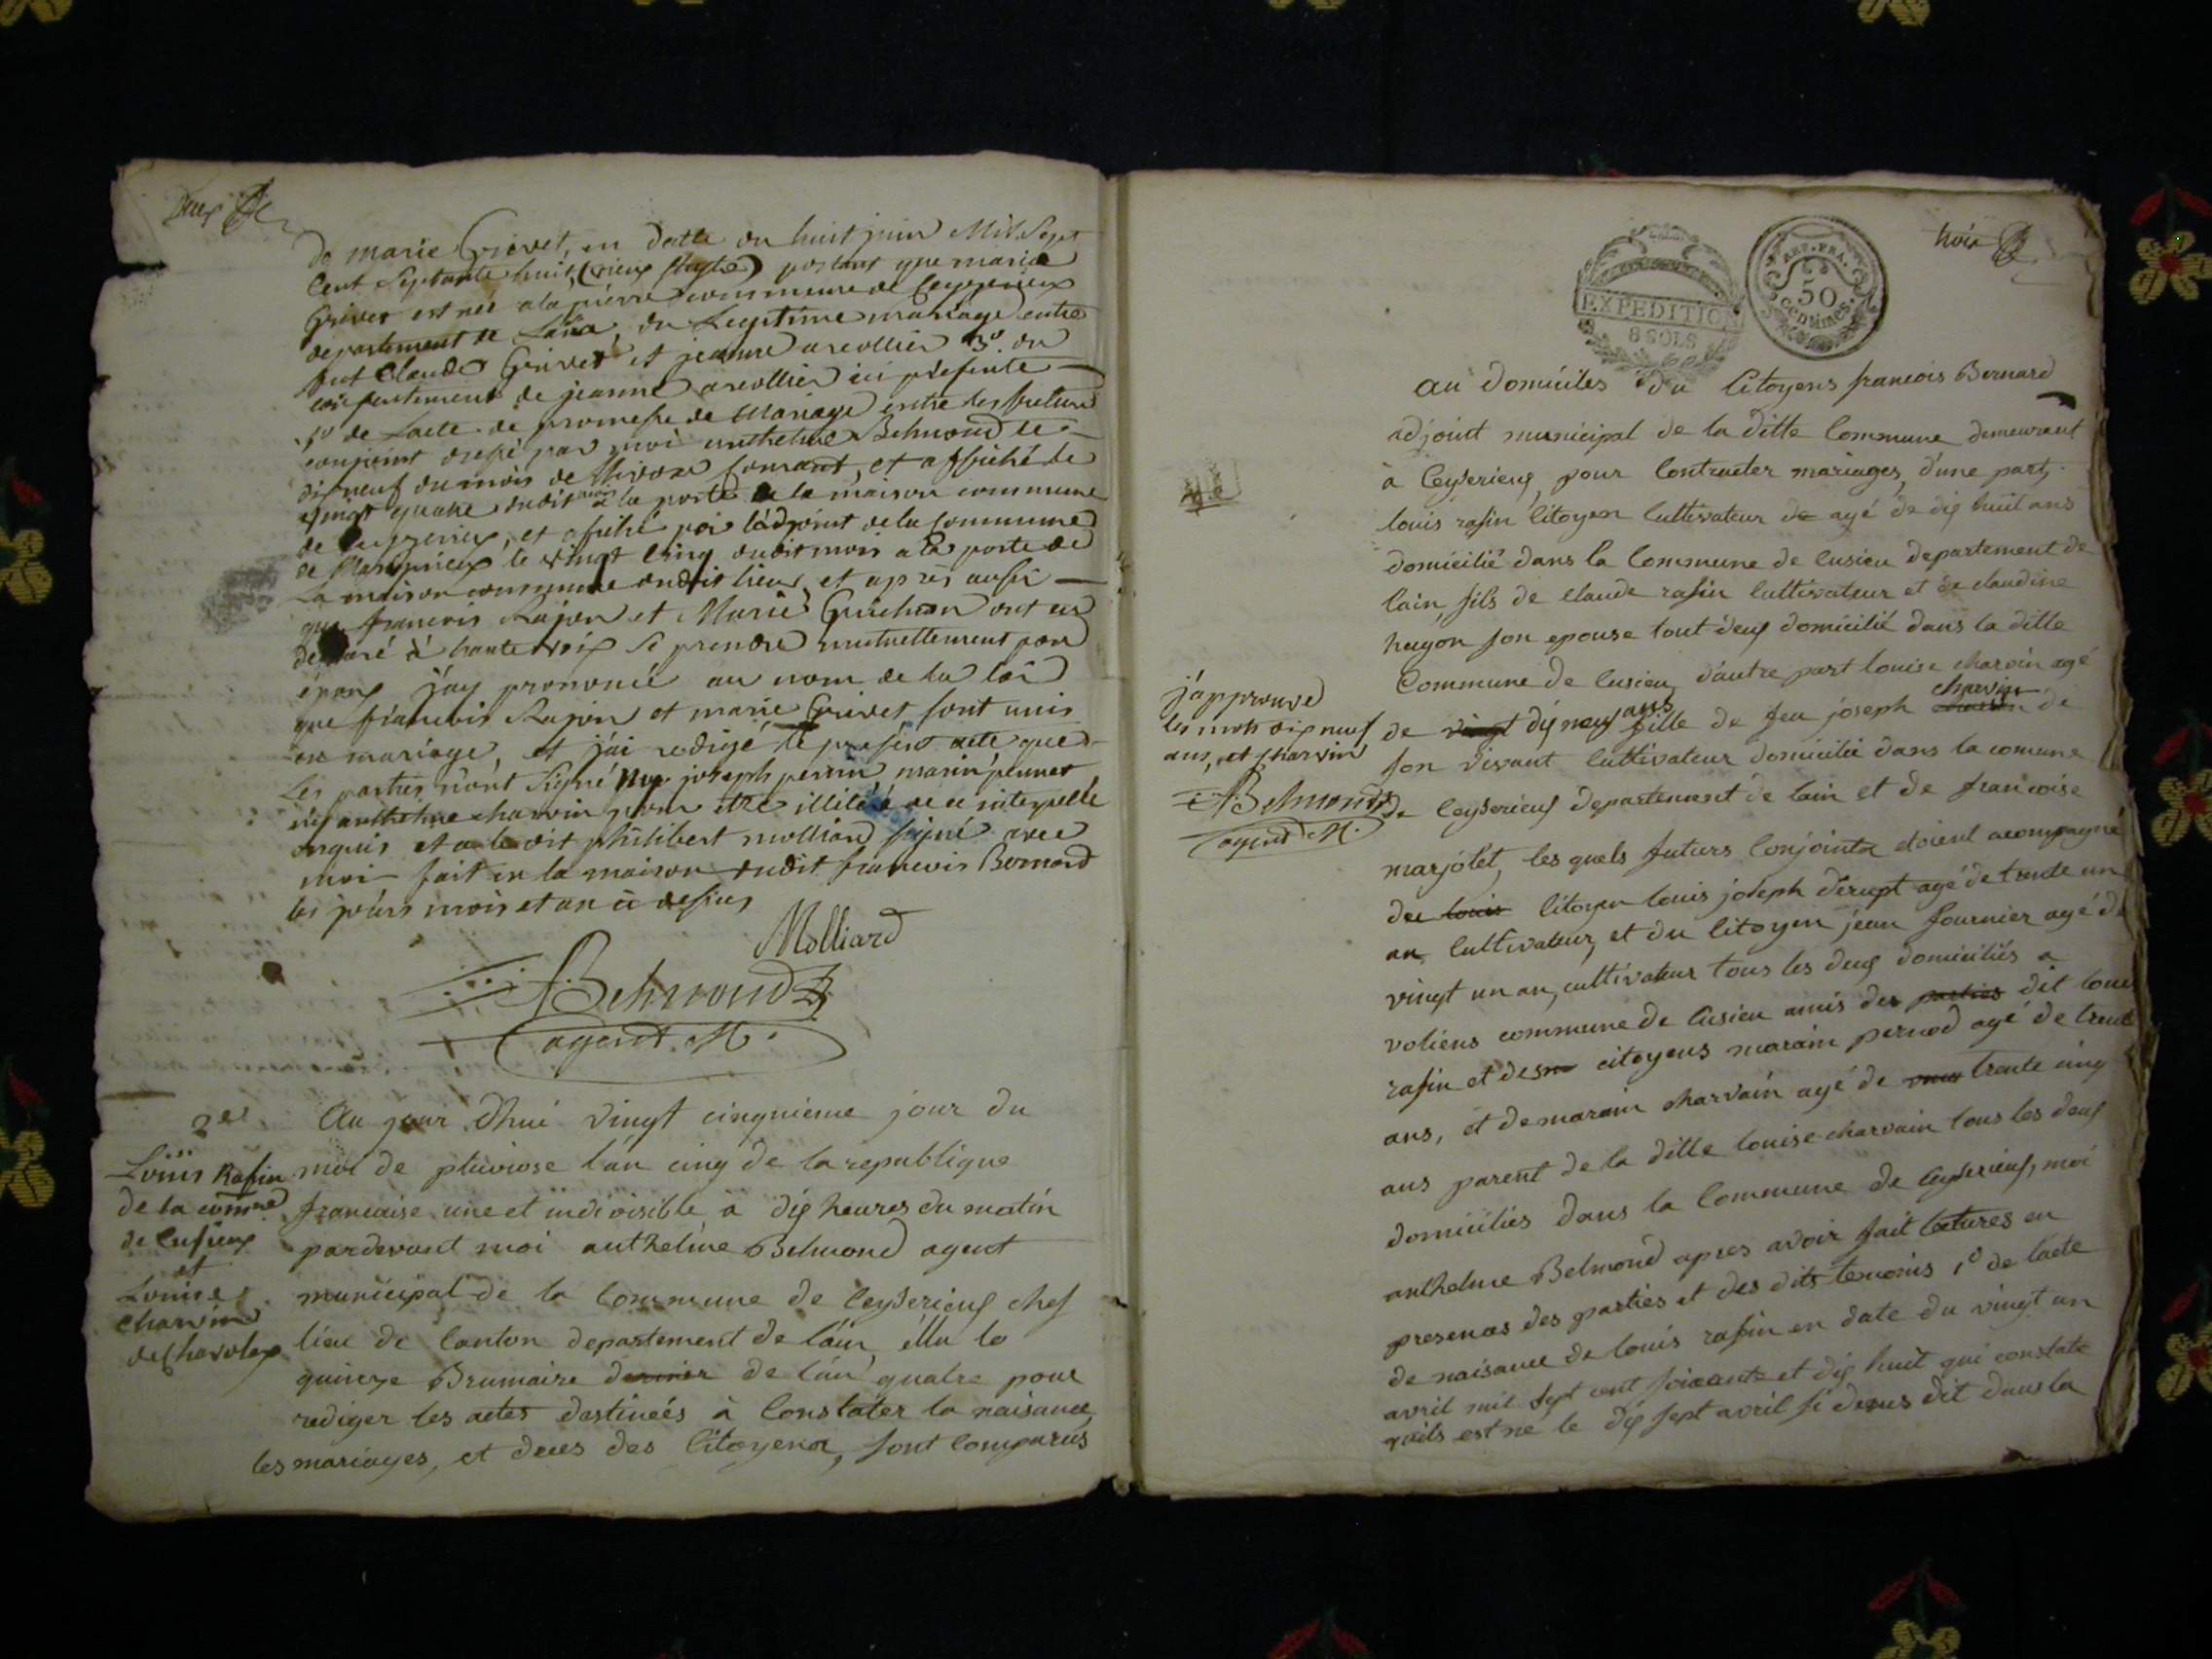 Deux
de marie Grivet, en datte du huit juin Mil Sept
Cent Septante huit, (vieux style) portant que marie
Grivet est née a la pierre commune de Ceyzerieux
departement de Lain, du Legitime mariage entre
feut Claude Grivet et jeanne arcollier 3º. du
consentement de jeanne arcollier ici présente
de Lacte de promesse de Mariage entre les futurs
conjoint dressé par moi anthelme Belmond le
dix neuf du mois de Nivose Courant, et affiché le
vingt quatre dudit mois a la porte de la maison commune
de Ceyzerieux, et afiché par l'adjoint de la Commune
de le vingt Cinq dudit mois a la porte de
La maison commune dudit lieu, et après aussi
que francois Rajon et Marie ont eu
declaré à haute voix Se prendre mutuellement pour
époux j'ay prononcé au nom de la loi
que francois Rajon et marie Grivet sont unis
en mariage, et j'ai redigé le present acte que
Les parties n'ont Signé joseph perrin, marin pernet
ny anthelme charvin pour etre illiteré de ce interpellé
enquis et a le dit philibert molliard signé avec
moi fait en la maison dudit francois Bernard
les jours mois et an ci dessus
Molliard
ABelmond
agent M.
2e
Louis Rasin
de la comme
de Cusieux
et
Louise
Charvin
de Chavolex
Au jour d'hui vingt cinquieme jour du
moi de pluviose l'an cinq de la republique
francaise une et indivisible à dix heures du matin
pardevant moi anthelme Belmond agent
municipal de la Commune de Ceyserieux chef
lieu de Canton departement de l'ain, éllu le
quinze Brumaire dernier de l'an quatre pour
rediger les actes destineés à Constater la naisance
les mariages, et deces des Citoyens, sont Comparus
trois
EXPEDITION
8 SOLS
REP. FRA.
50
Centimes.
au domiciles du Citoyens francois Bernard
adjoint municipal de la ditte Commune demeurant
à Ceyserieux, pour Contracter mariages, d'une part,
louis rasin Citoyen Cultivateur de agé de dix huit ans
domicilié dans la Commune de Cusieu departement de
lain, fils de claude rasin cultivateur et de claudine
hugon son epouse tout deux domicilié dans la ditte
Commune de Cusieu, d'autre part louise charvin agé
de vingt dix neuf ans fille de feu joseph charvin de
son vivant Cultivateur domicilié dans la comune
de Ceyserieux departement de lain et de francoise
marjolet, les quels futurs Conjoints etoient acompagné
du louis Citoyen louis joseph derupt agé de trente un
an Cultivateur, et du Citoyen jean fournier agé de
vingt un an, cultivateur tous les deux domiciliés a
voliens commune de Cusieu amis des parties dit louis
rasin et des citoyens marain pernod agé de trente
ans, et de marain charvain agé de trente cinq
ans parent de la ditte louise charvain tous les deux
domiciliés dans la Commune de Ceyserieux, moi
anthelme Belmond apres avoir fait lectures en
presences des parties et des dits temoins 1º de l'acte
de naisance de louis rasin en date du vingt un
avril mil sept cent soixante et dix huit qui constate
quils est ne le dix sept avril si desus dit dans la
j'approuve
les mots dix neuf
ans, et charvin
ABelmond
agent M.